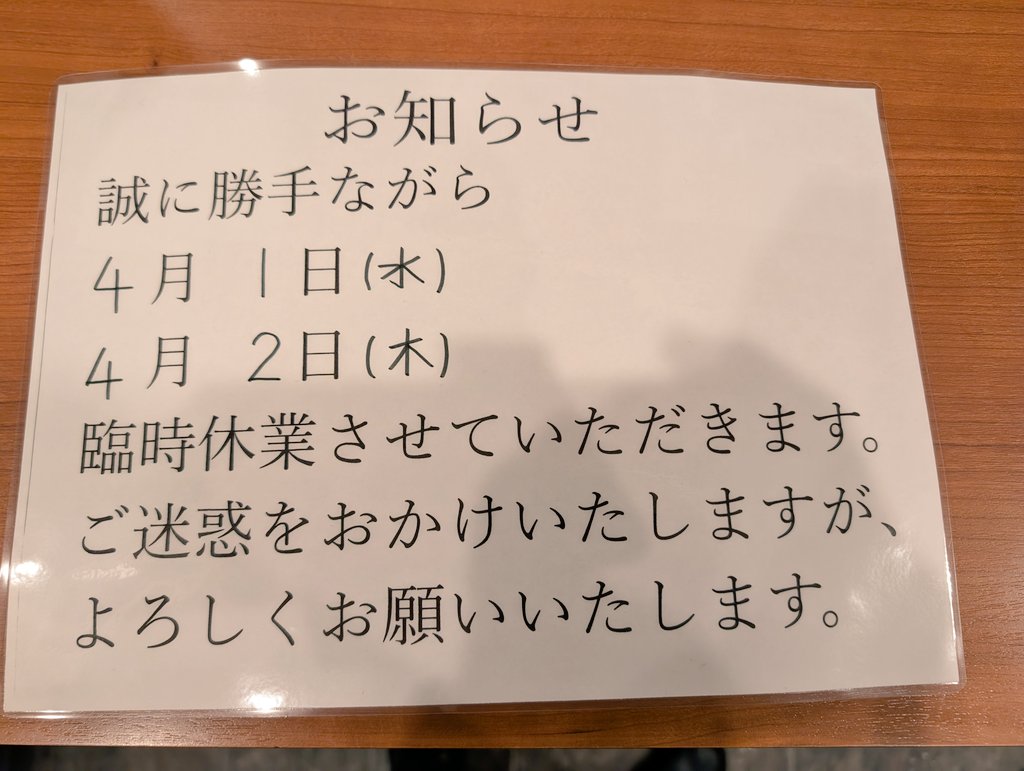 お知らせ
誠に勝手ながら
4月 1日(水)
4月 2日(木)
臨時休業させていただきます。
ご迷惑をおかけいたしますが、
よろしくお願いいたします。